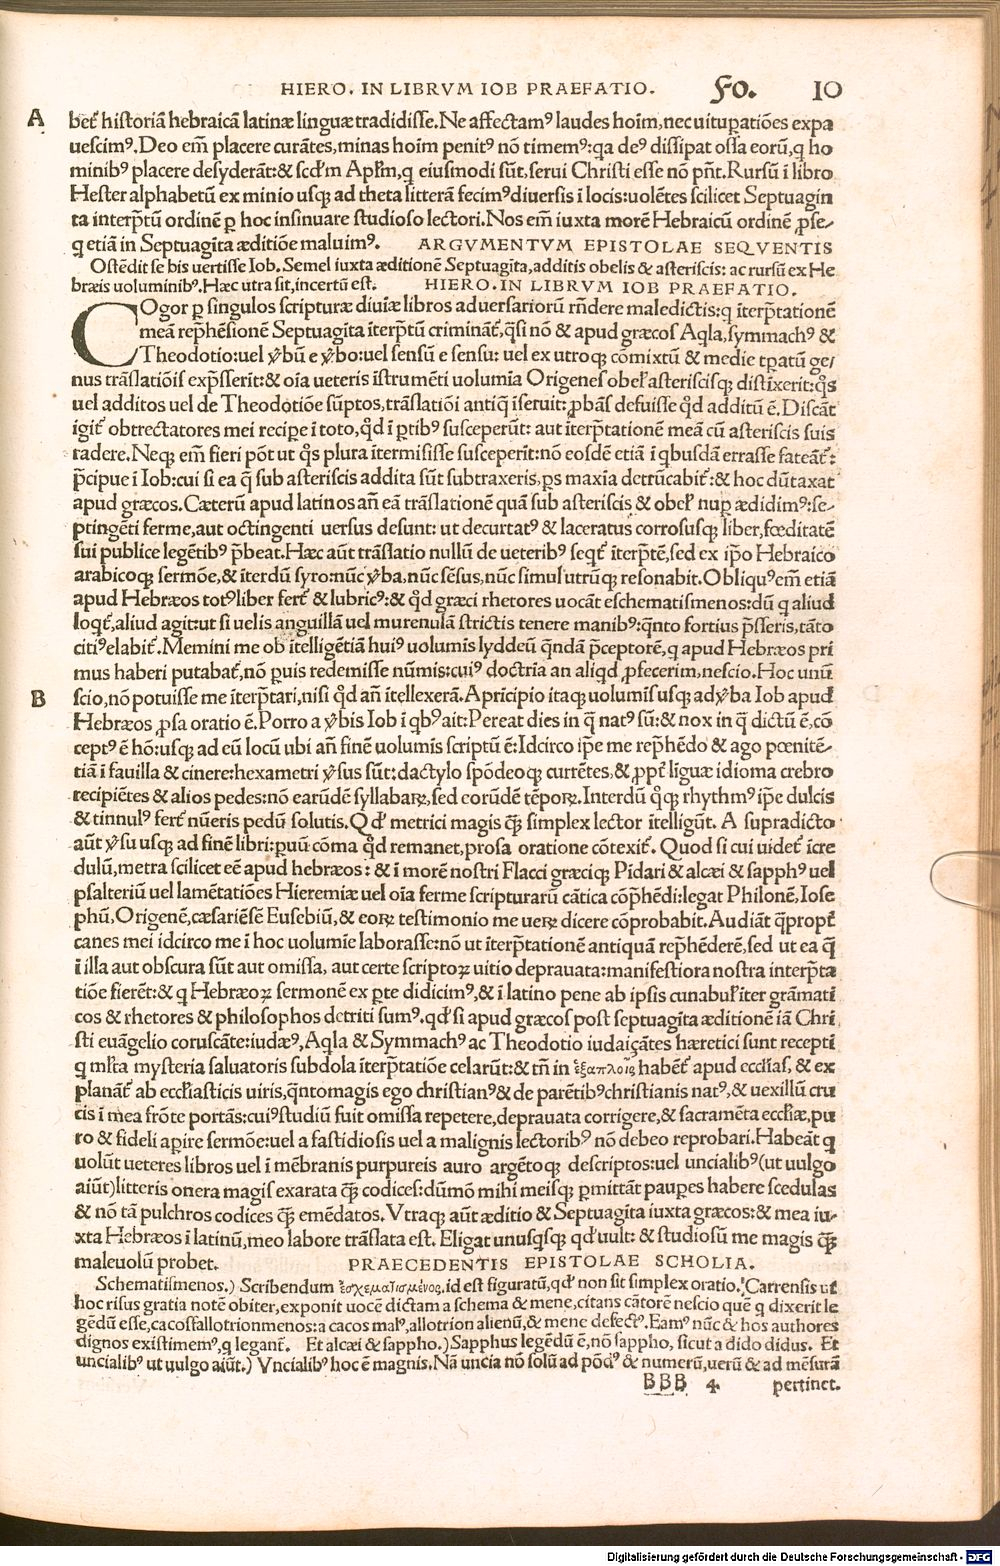 HIERO. IN LIBRVM IOB PRAEFATIO. FO. 10
A bet᷑ historiā hebraicā latinæ linguæ tradidisse. Ne affectamꝰ laudes hoīm, nec uituꝑatiões expa
uescimꝰ. Deo em̄ placere curātes, minas hoīm penitꝰ nō timemꝰ: qa deꝰ dissipat ossa eorū, q ho
minibꝰ placere desyderāt: & scd'm Apłm, q eiusmodi sūt, serui Christi esse nō pn̄t. Rursū ī libro
Hester alphabetū ex minio usqꝫ ad theta litterā fecimꝰ diuersis ī locis: uolētes scilicet Septuagin
ta interp̄tū ordinē ꝑ hoc insinuare studioso lectori. Nos em̄ iuxta morē Hebraicū ordinē ꝓse-
q etiā in Septuagīta æditiōe maluimꝰ. ARGVMENTVM EPISTOLAE SEQVENTIS
Ostēdit se bis uertisse Iob. Semel iuxta æditionē Septuagīta, additis obelis & asteriscis: ac rursū ex He
bræis uoluminibꝰ. Hæc utra sit, incertū est. HIERO. IN LIBRVM IOB PRAEFATIO.
COgor ꝑ singulos scripturæ diuīæ libros aduersariorū rn̄dere maledictis: q īterp̄tationē
meā rep̄hēsionē Septuagīta īterp̄tū crimināt᷑, q̄si nō & apud græcos Aqla, symmachꝰ &
Theodotio: uel v̄bū e v̄bo: uel sensū e sensu: uel ex utroqꝫ cōmixtū & medie tꝑatū ge/
nus trāslatiōis exp̄sserīt: & oīa ueteris īstrumēti uolumīa Origenes obeł asteriscisqꝫ distīxerit: q̄s
uel additos uel de Theodotiōe sūptos, trāslatiōi antiq̄ īseruit: ꝓbās defuisse q̄d additū ē. Discāt
igit᷑ obtrectatores mei reciꝑe ī toto, q̄d ī ꝑtibꝰ susceperūt: aut īterp̄tationē meā cū asteriscis suis
radere. Neqꝫ em̄ fieri pōt ut q̄s plura ītermisisse susceperīt: nō eosdē etiā ī qbusdā errasse fateāt᷑:
p̄cipue ī Iob: cui si ea q̄ sub asteriscis addita sūt subtraxeris, ꝑs maxīa detrūcabit᷑: & hoc dūtaxat
apud græcos. Cæterū apud latinos añ eā trāslationē quā sub asteriscis & obeł nuꝑ ædidimꝰ: se-
ptingēti ferme, aut octingenti uersus desunt: ut decurtatꝰ & laceratus corrosusqꝫ liber, fœditatē
sui publice legētibꝰ p̄beat. Hæc aūt trāslatio nullū de ueteribꝰ seqt᷑ īterp̄tē, sed ex ip̄o Hebraico
arabicoqꝫ sermōe, & īterdū syro: nūc v̄ba, nūc sēsus, nūc simul utrūqꝫ resonabit. Obliquꝰ em̄ etiā
apud Hebræos totꝰ liber fert᷑ & lubricꝰ: & q̄d græci rhetores uocāt eschematismenos: dū q aliud
loqt᷑, aliud agit: ut si uelis anguillā uel murenulā strictis tenere manibꝰ: q̄nto fortius p̄sseris, tāto
citiꝰ elabit᷑. Memini me ob ītelligētiā huiꝰ uolumis lyddeū q̄ndā p̄ceptorē, q apud Hebræos pri
mus haberi putabat᷑, nō ꝑuis redemisse nūmis: cuiꝰ doctrīa an aliqd ꝓfecerim, nescio. Hoc unū
B scio, nō potuisse me īterp̄tari, nisi q̄d añ ītellexerā. A pricipio itaqꝫ uolumīs usqꝫ ad v̄ba Iob apud
Hebræos ꝓsa oratio ē. Porro a v̄bis Iob ī qbꝰ ait: Pereat dies in q̄ natꝰ sū: & nox in q̄ dictū ē, cō
ceptꝰ ē hō: usqꝫ ad eū locū ubi añ finē uolumis scriptū ē: Idcirco ip̄e me rep̄hēdo & ago pœnitē-
tiā ī fauilla & cinere: hexametri v̄sus sūt: dactylo spōdeoqꝫ currētes, & ꝓpt᷑ līguæ idioma crebro
recipiētes & alios pedes: nō earūdē syllabaꝝ, sed eorūdē tēpoꝝ. Interdū qꝫ rhythmꝰ ip̄e dulcis
& tinnulꝰ fert᷑ nūeris pedū solutis. Qd' metrici magis q̄ꝫ simplex lector ītelligūt. A supradicto
aūt v̄su usqꝫ ad finē libri: ꝑuū cōma q̄d remanet, prosa oratione cōtexit᷑. Quod si cui uidet᷑ īcre
dulū, metra scilicet eē apud hebræos: & ī morē nostri Flacci græciqꝫ Pīdari & alcæi & sapphꝰ uel
psalteriū uel lamētatiões Hieremiæ uel oīa ferme scripturarū cātica cōp̄hēdi: legat Philonē, Iose
phū, Origenē, cæsariēsē Eusebiū, & eoꝝ testimonio me ueꝝ dicere cōprobabit. Audiāt q̄propt᷑
canes mei idcirco me ī hoc uolumīe laborasse: nō ut īterp̄tationē antiquā rep̄hēderē, sed ut ea q̄
ī illa aut obscura sūt aut omissa, aut certe scriptoꝝ uitio deprauata: manifestiora nostra interp̄ta
tiōe fierēt: & q Hebræoꝝ sermonē ex ꝑte didicimꝰ, & ī latino pene ab ipsis cunabuł īter grāmati
cos & rhetores & philosophos detriti sumꝰ. qd' si apud græcos post septuagīta æditionē iā Chri
sti euāgelio coruscāte: iudæꝰ, Aqla & Symmachꝰ ac Theodotio iudaiçātes hæretici sunt recepti
q mł̄ta mysteria saluatoris subdola īterp̄tatiōe celarūt: & tn̄ in ἑξαπλοῖς habēt᷑ apud eccłias, & ex
planāt᷑ ab eccłiasticis uiris, q̄ntomagis ego christianꝰ & de parētibꝰ christianis natꝰ, & uexillū cru
cis ī mea frōte portās: cuiꝰ studiū fuit omissa repetere, deprauata corrigere, & sacramēta eccłiæ, pu
ro & fideli aꝑire sermōe: uel a fastidiosis uel a malignis lectoribꝰ nō debeo reprobari. Habeāt q
uolūt ueteres libros uel ī mēbranis purpureis auro argētoqꝫ descriptos: uel uncialibꝰ (ut uulgo
aiūt) litteris onera magis exarata q̄ꝫ codices: dūmō mihi meisqꝫ ꝑmittāt pauꝑes habere scedulas
& nō tā pulchros codices q̄ꝫ emēdatos. Vtraqꝫ aūt æditio & Septuagīta iuxta græcos: & mea iu-
xta Hebræos ī latinū, meo labore trāslata est. Eligat unusqsqꝫ qd' uult: & studiosū me magis q̄ꝫ
maleuolū probet. PRAECEDENTIS EPISTOLAE SCHOLIA.
Schematismenos.) Scribendum ἐσχεματισμένος, id est figuratū, qd' non sit simplex oratio. Carrensis ut
hoc risus gratia notē obiter, exponit uocē dictam a schema & mene, citans cātorē nescio quē q dixerit le
gēdū esse, cacosfallotrionmenos: a cacos malꝰ, allotrion alienū, & mene defectꝰ. Eamꝰ nūc & hos authores
dignos existimemꝰ, q legant᷑. Et alcæi & sappho.) Sapphus legēdū ē, nō sappho, sicut a dido didus. Et
uncialibꝰ ut uulgo aiūt.) Vncialibꝰ hoc ē magnis. Nā uncia nō solū ad pōdꝰ & numerū, uerū & ad mēsurā
BBB 4 pertinet.
Digitalisierung gefördert durch die Deutsche Forschungsgemeinschaft - DFG